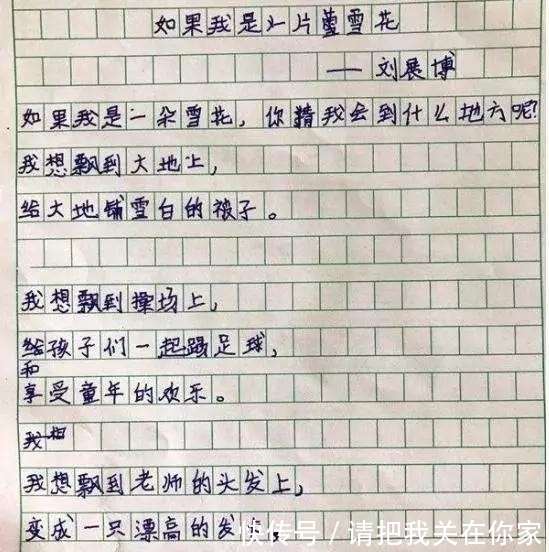 如果我是一片雪花
——刘展博
如果我是一朵雪花，你猜我会到什么地方呢？
我想飘到大地上，
给大地铺雪白的被子。
我想飘到操场上，
给孩子们一起踢足球，
和
享受童年的欢乐。
我想
我想飘到老师的头发上，
变成一只漂高的发
快传号／请把我关在你家